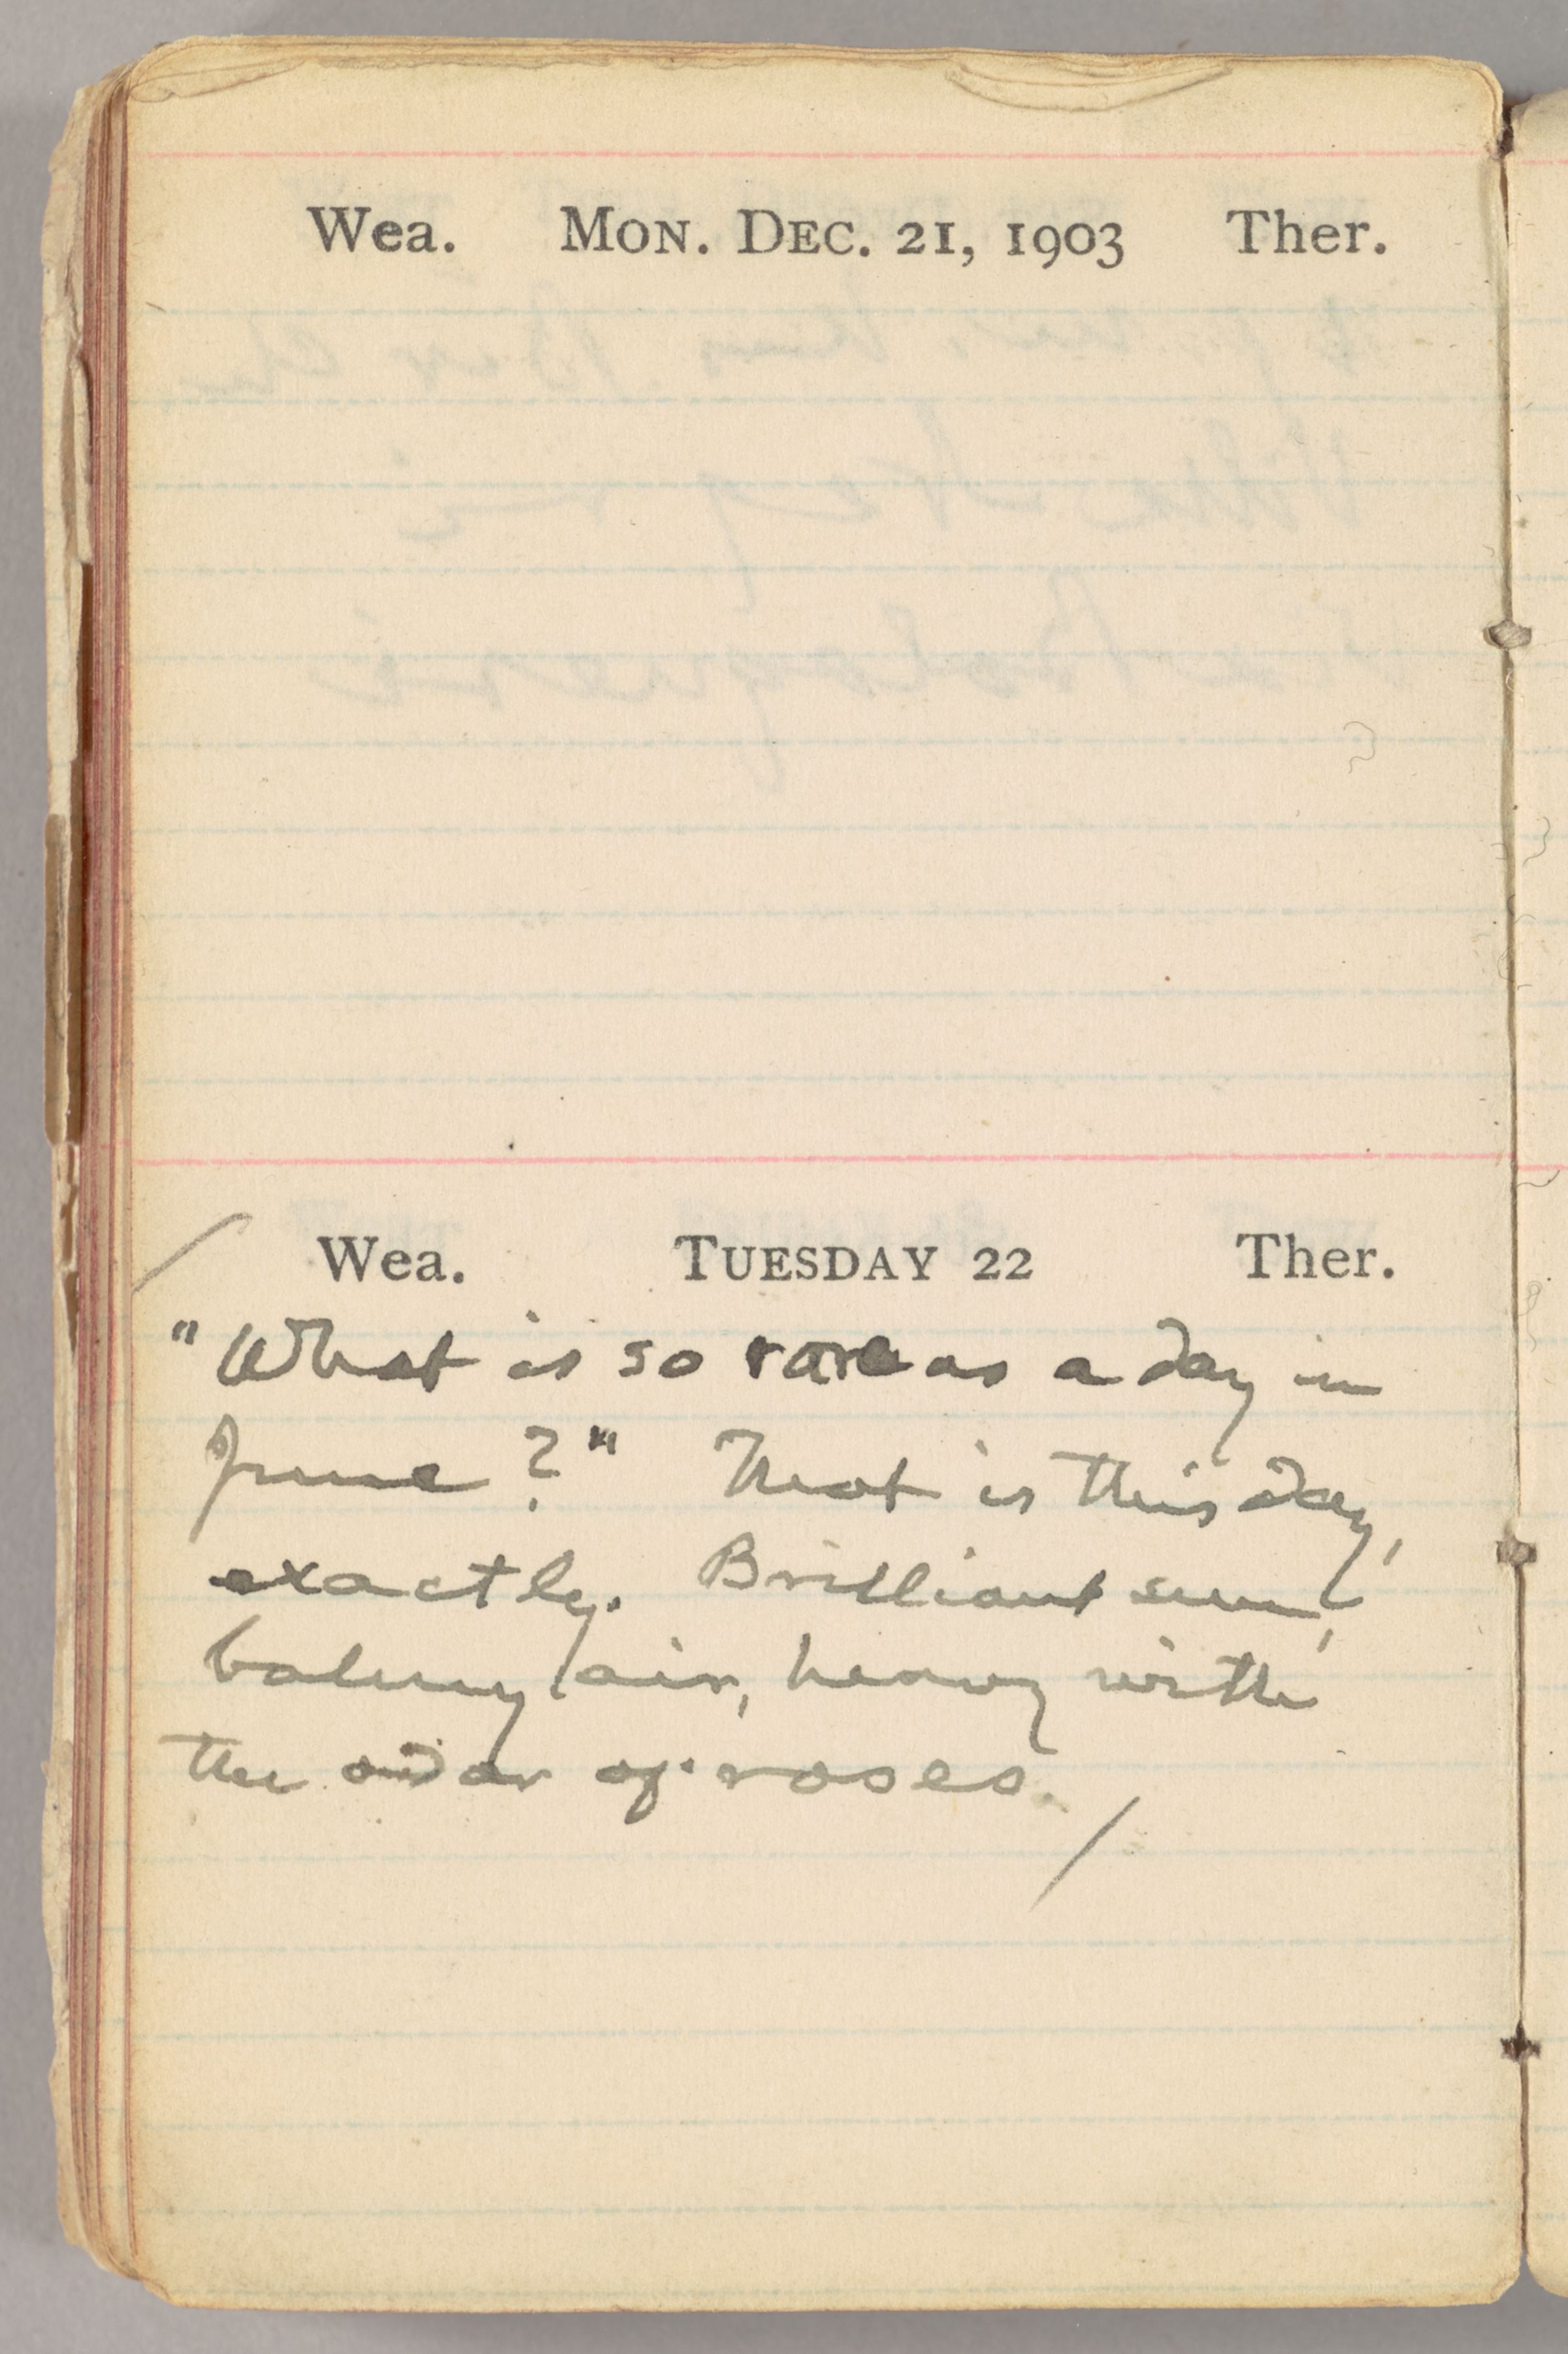 Wea. MON. DEC. 21, 1903 Ther.
Wea. TUESDAY 22 Ther.
"What is so rare as a day in
June?" That is this day,
exactly. Brilliant sun,
balmy air, heavy with
the odor of roses.